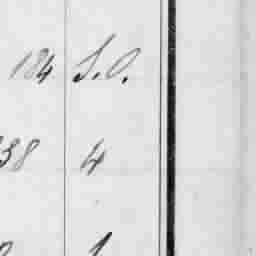 184 S.O.
38 4